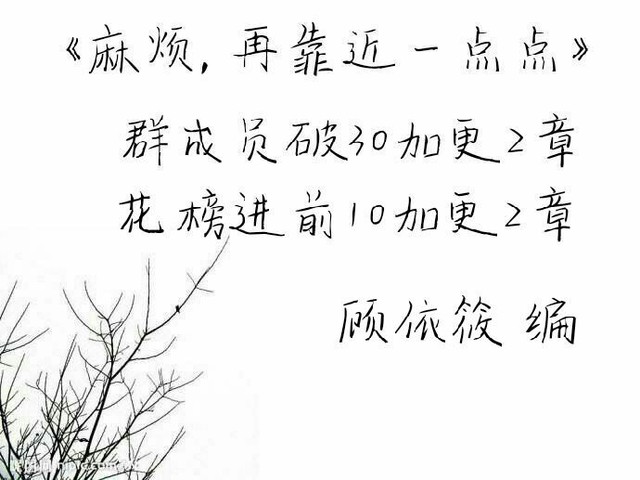 《麻烦，再靠近一点点》
群成员破30加更2章
花榜进前10加更2章
顾依筱 编